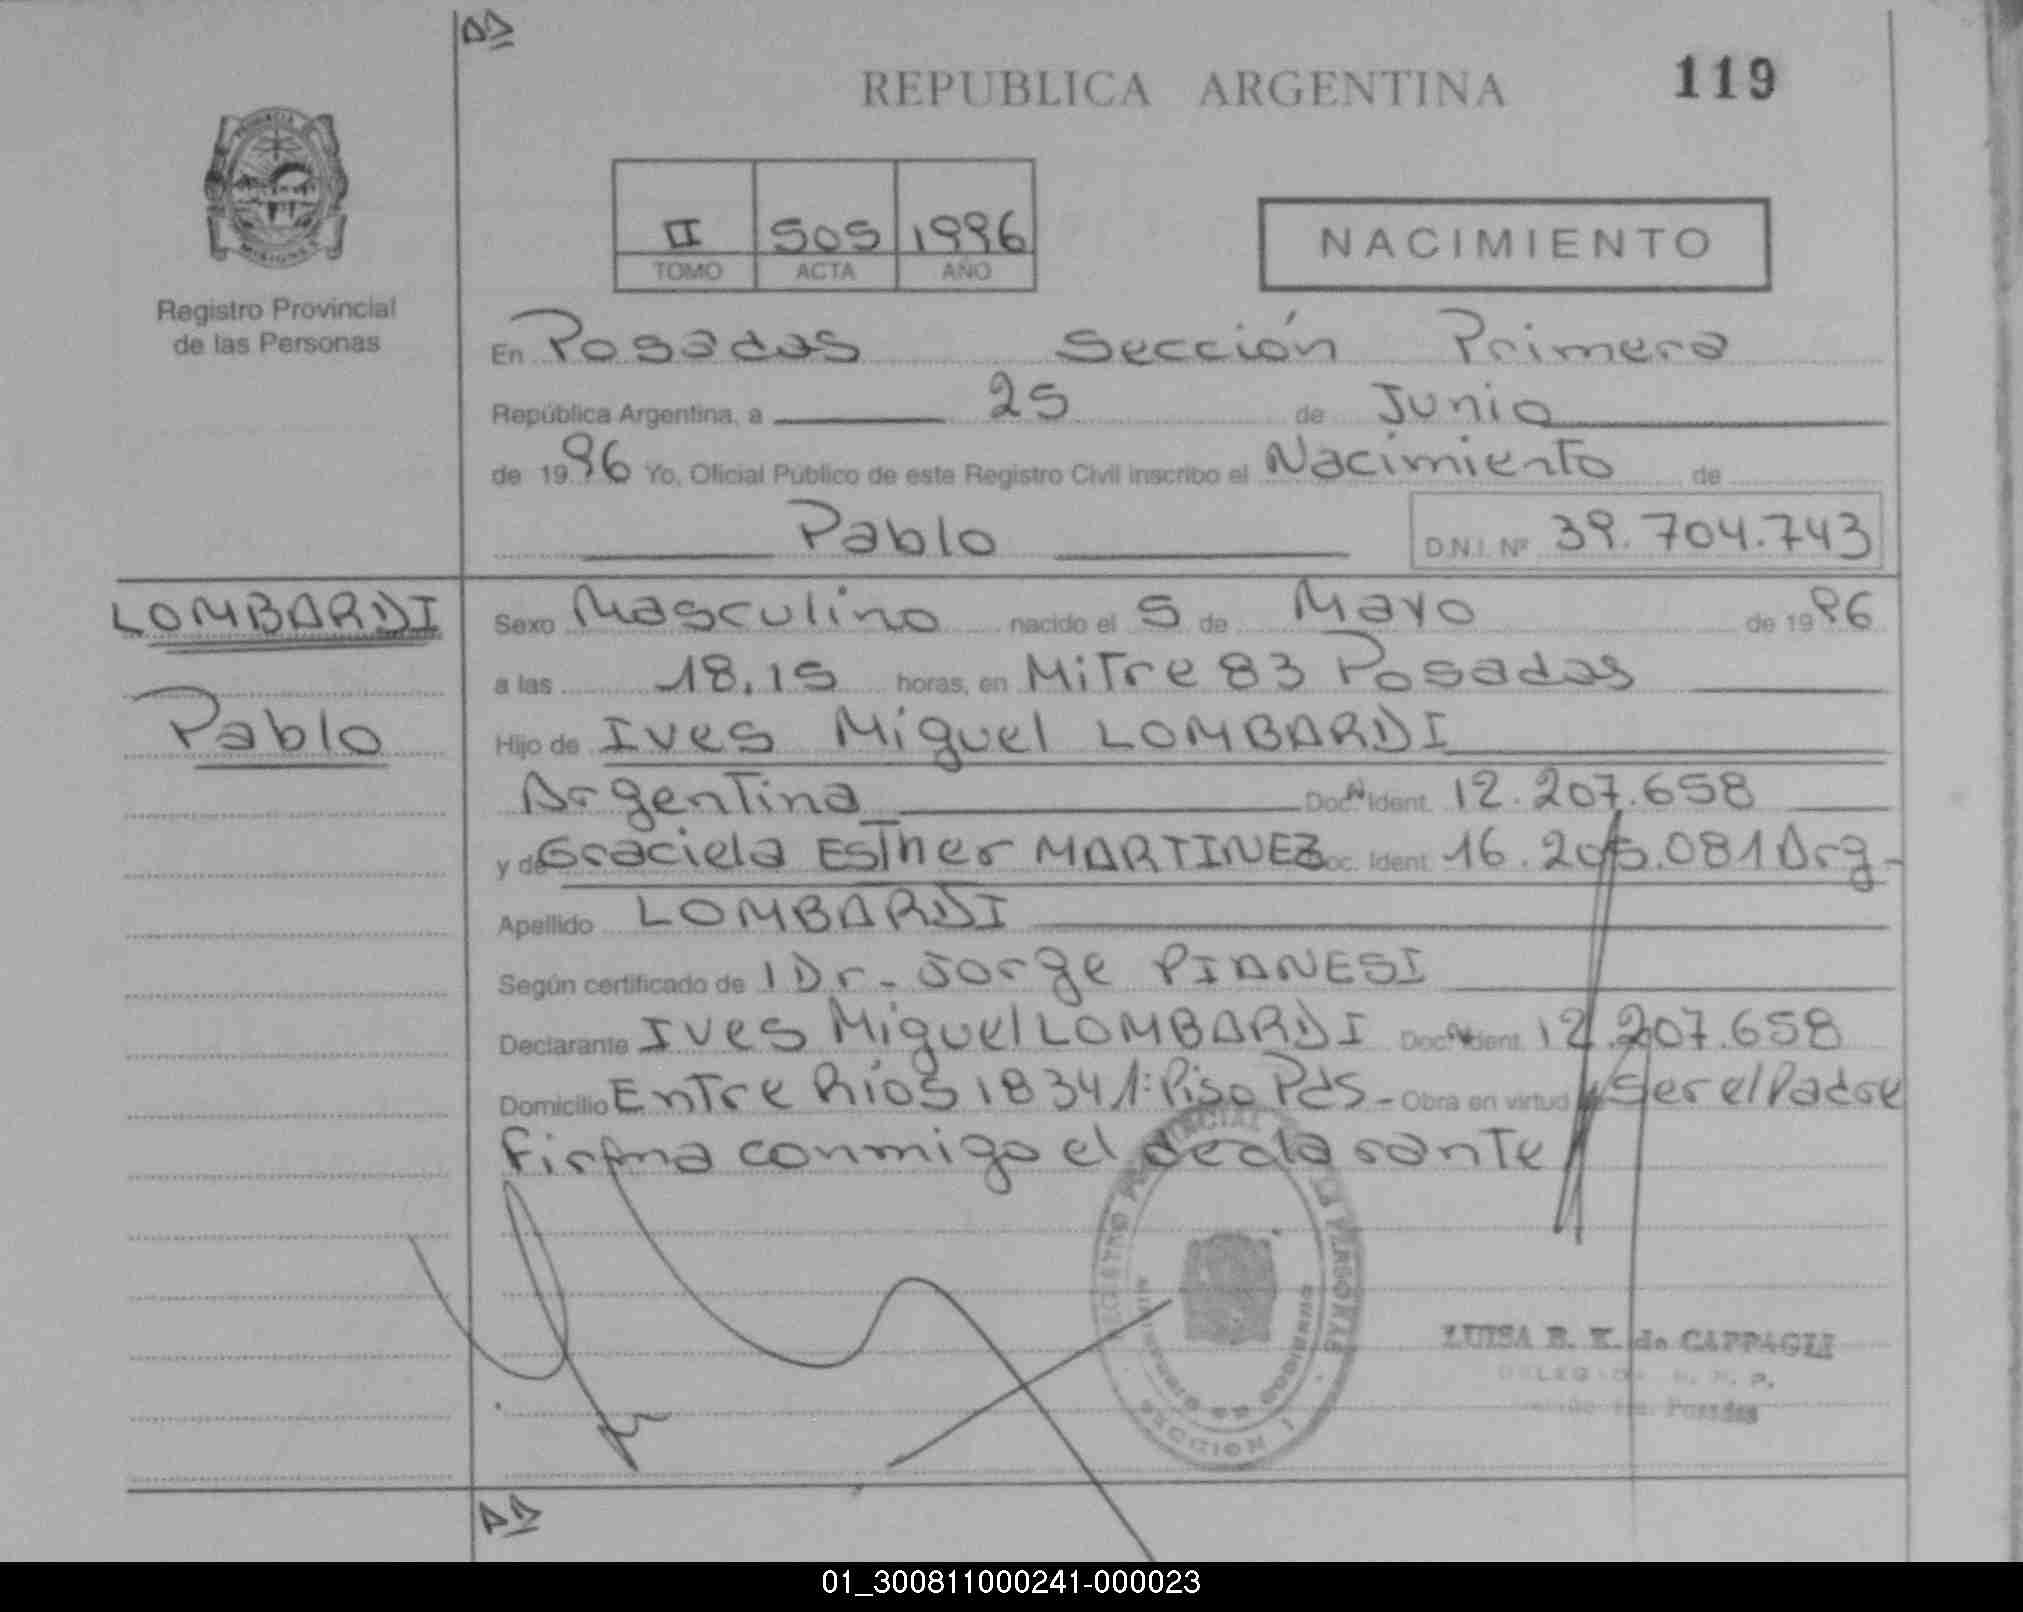 REPUBLICA ARGENTINA 119
II 505 1996
TOMO ACTA AÑO
NACIMIENTO
Registro Provincial
de las Personas
En Posadas Sección Primera
República Argentina, a 25 de Junio
de 1996 Yo, Oficial Público de este Registro Civil inscribo el Nacimiento de
Pablo D.N.I. Nº 39.704.743
LOMBARDI
Pablo
Sexo Masculino nacido el 5 de Mayo de 1996
a las 18.15 horas, en Mitre 83 Posadas
Hijo de Ives Miguel LOMBARDI
Argentina Doc. Ident. 12.207.658
y de Graciela Esther MARTINEZ Doc. Ident. 16.205.081 Arg-
Apellido LOMBARDI
Según certificado de l Dr. Jorge PIANESI
Declarante Ives Miguel LOMBARDI Doc. Ident. 12.207.658
Domicilio Entre Ríos 1834 1: Piso Pds- Obra en virtud ser el Padre
Firma conmigo el declarante
REGISTRO PROVINCIAL LA PERSONAS
MINISTERIO DE GOBIERNO
SECCION 1
LUISA B. K. de CAFFAGLI
DELEGADA R. P. P.
Posadas
01_300811000241-000023